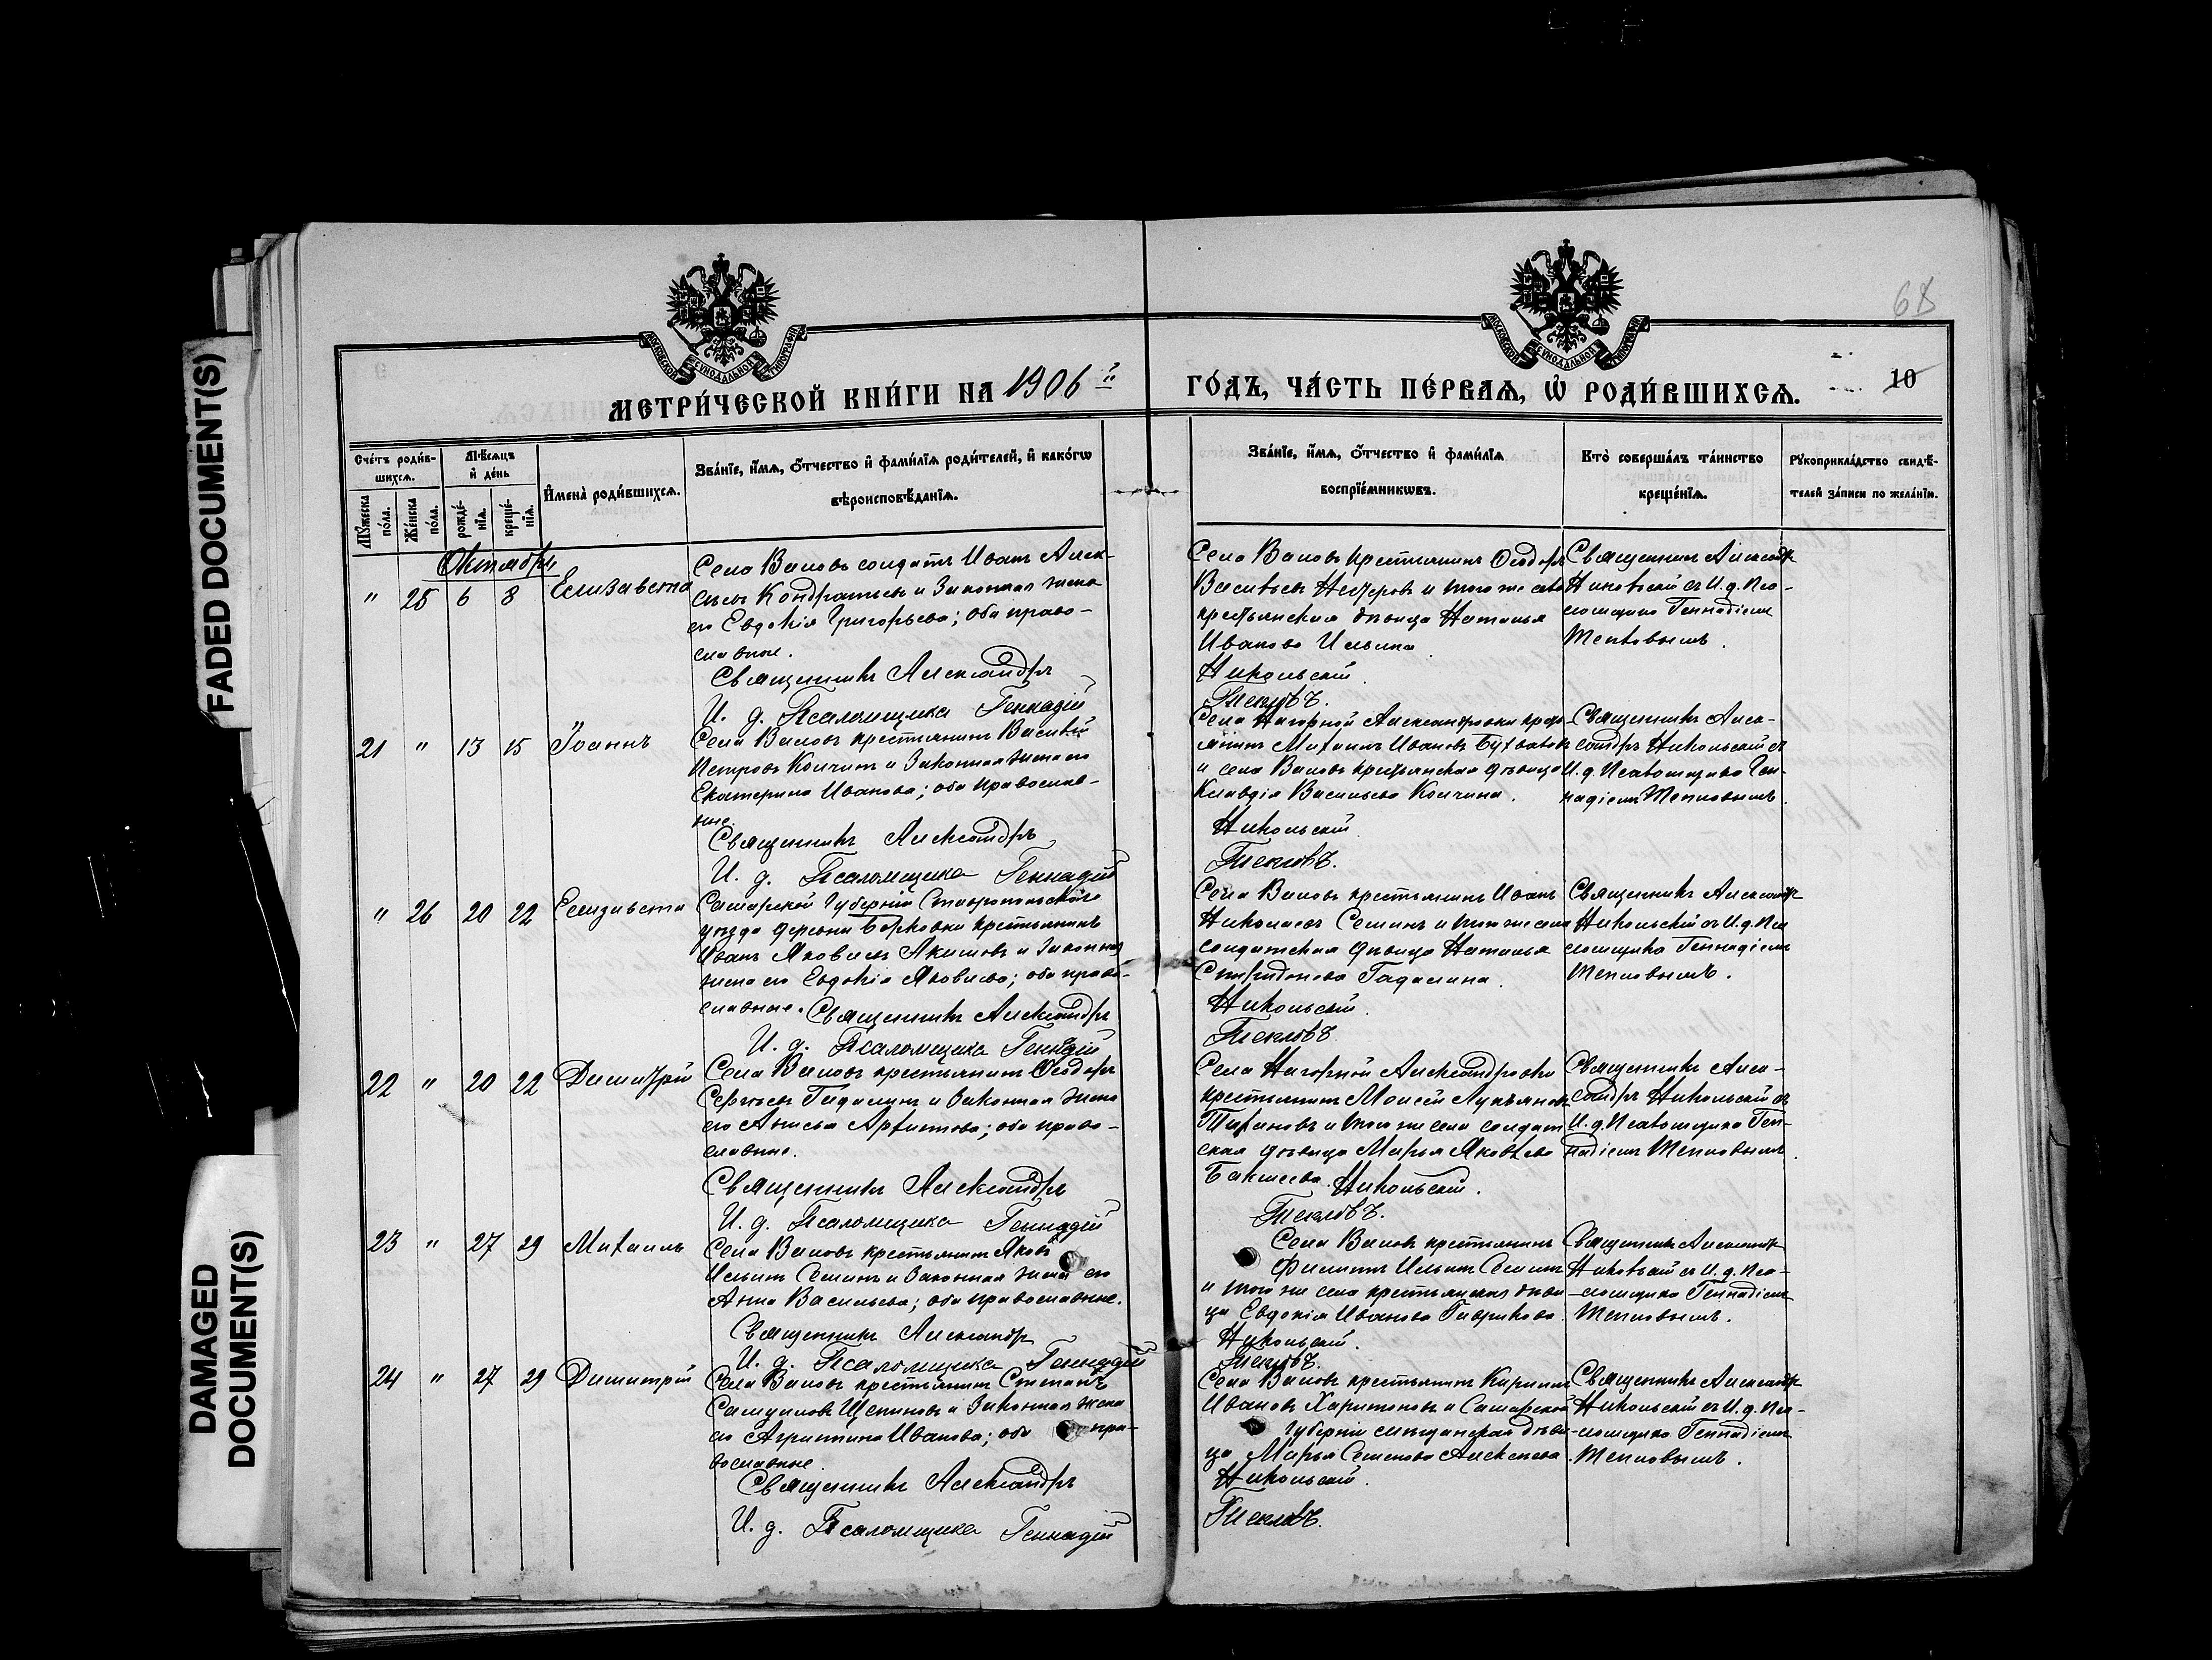 FADED DOCUMENT(S)
DAMAGED
DOCUMENT(S)
68
10
МОСКОВСКОЙ СѴНОДАЛЬНОЙ ТИПОГРАФІИ
МОСКОВСКОЙ СѴНОДАЛЬНОЙ ТИПОГРАФІИ
МЕТРИ́ЧЕСКОЙ КНИ́ГИ НА 1906й
ГО́ДЪ, ЧА́СТЬ ПЕ́РВАѦ, Ѡ҆ РОДИ́ВШИХСѦ.
Сче́тъ роди́в-
шихсѧ.
Мꙋ́жеска по́ла.
Же́нска по́ла.
Мѣ́сѧцъ
и҆ де́нь
рожде́-
нїѧ.
креще́-
нїѧ.
И҆мена̀ роди́вшихсѧ.
Зва́нїе, и҆́мѧ, ѻ҆́тчество и҆ фами́лїѧ роди́телей, и҆ како́гѡ
вѣроисповѣ́данїѧ.
Зва́нїе, и҆́мѧ, ѻ҆́тчество и҆ фами́лїѧ
воспрїе́мникѡвъ.
Кто̀ соверша́лъ та́инство
креще́нїѧ.
Рꙋкоприкла́дство свидѣ́-
телей за́писи по жела́нїю.
Октябрь
" 25 6 8 Елизавета
Села Валовъ солдатъ Иванъ Алек-
сѣевъ Кондратьевъ и законная жена
его Евдокія Григорьева; оба право-
славные.
Священникъ Александръ
И. д. Псаломщика Геннадій
Села Валовъ крестьянинъ Ѳеодоръ
Васильевъ и того же села
крестьянская дѣвица Наталья
Иванова Ильина.
Никольскій.
Тепловъ.
Священникъ Александръ
Никольскій съ И. д. Пса-
ломщика Геннадіемъ
Тепловымъ.
21 " 13 15 Іоаннъ
Села Валовъ крестьянинъ Василій
Петровъ Колчинъ и законная жена его
Екатерина Иванова; оба православ-
ные.
Священникъ Александръ
И. д. Псаломщика Геннадій
Села Нагорной Александровки кресть-
янинъ Михаилъ Ивановъ
и села Валовъ крестьянская дѣвица
Клавдія Васильева Колчина.
Никольскій
Тепловъ.
Священникъ Алек-
сандръ Никольскій съ
И. д. Псаломщика Ген-
надіемъ Тепловымъ.
" 26 20 22 Елизавета
Самарской Губерніи Ставропольскаго
уѣзда деревни Борковки крестьянинъ
Иванъ Яковлевъ Акимовъ и законная
жена его Евдокія Яковлева; оба право-
славные. Священникъ Александръ
И. д. Псаломщика Геннадій
Села Валовъ крестьянинъ Иванъ
Николаевъ Семинъ и того же села
солдатская дѣвица Наталья
Спиридонова Гадалина.
Никольскій.
Тепловъ
Священникъ Александръ
Никольскій съ И. д. Пса-
ломщика Геннадіемъ
Тепловымъ.
22 " 20 22 Димитрій
Села Валовъ крестьянинъ Ѳеодоръ
Сергѣевъ Гадалинъ и законная жена
его Анисья Архипова; оба право-
славные.
Священникъ Александръ
И. д. Псаломщика Геннадій
Села Нагорной Александровки
крестьянинъ Моисей Лукьяновъ
Тихановъ и того же села солдат-
ская дѣвица Марья Яковлева
Бакшеева. Никольскій.
Тепловъ.
Священникъ Алек-
сандръ Никольскій съ
И. д. Псаломщика Ген-
надіемъ Тепловымъ.
23 " 27 29 Михаилъ
Села Валовъ крестьянинъ Яковъ
Ильинъ Семинъ и законная жена его
Анна Васильева; оба православные.
Священникъ Александръ
И. д. Псаломщика Геннадій
Села Валовъ крестьянинъ
Филиппъ Ильинъ Семинъ
и того же села крестьянская дѣви-
ца Евдокія Иванова Гаврикова.
Никольскій.
Тепловъ.
Священникъ Александръ
Никольскій съ И. д. Пса-
ломщика Геннадіемъ
Тепловымъ.
24 " 27 29 Димитрій
Села Валовъ крестьянинъ Степанъ
Самуиловъ Щепиновъ и законная жена
его Агриппина Иванова; оба пра-
вославные.
Священникъ Александръ
И. д. Псаломщика Геннадій
Села Валовъ крестьянинъ Кириллъ
Ивановъ Харитоновъ и Самарской
губерніи мѣщанская дѣви-
ца Марья Семенова Алексѣева.
Никольскій.
Тепловъ.
Священникъ Александръ
Никольскій съ И. д. Пса-
ломщика Геннадіемъ
Тепловымъ.